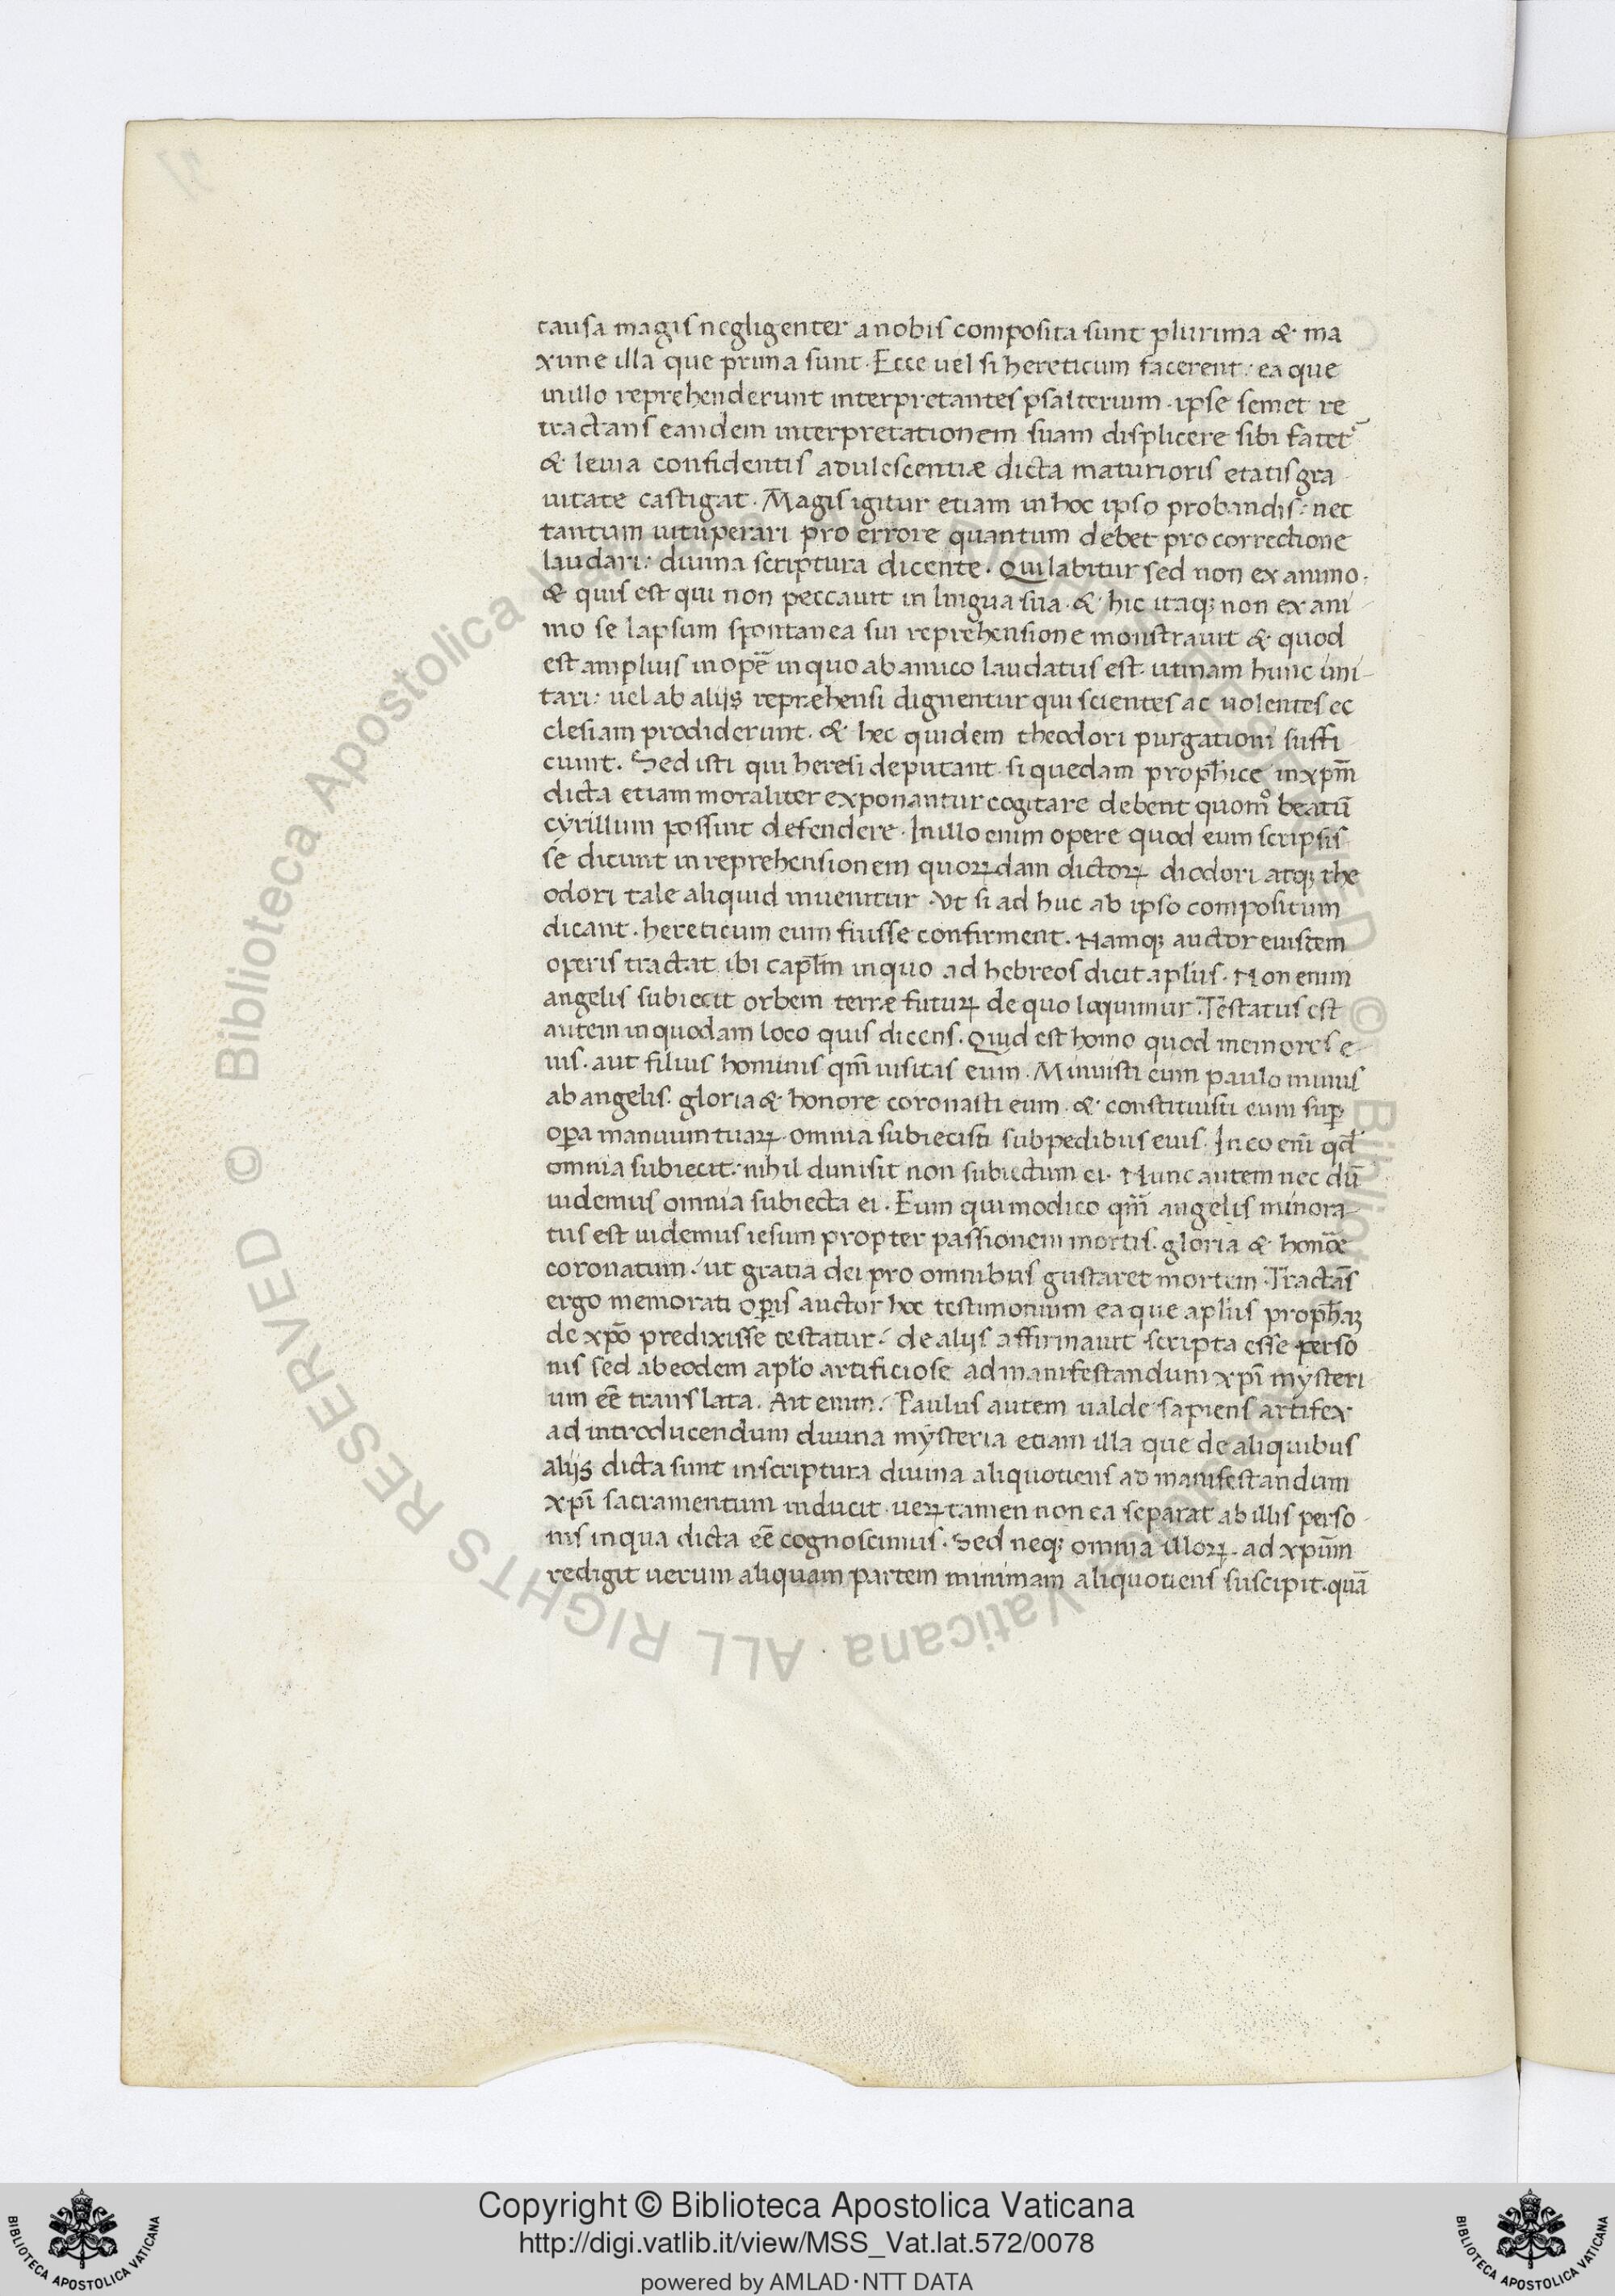 causa magis negligenter a nobis composita sunt plurima & ma
xime illa que prima sunt. Ecce uel si hereticum facerent: ea que
in illo reprehenderunt interpretantes psalterium. ipse semet re
tractans eandem interpretationem suam displicere sibi fatet᷑
& leuia confidentis adulescentiæ dicta maturioris etatis gra
uitate castigat. Magis igitur etiam in hoc ipso probandis: nec
tantum uituperari pro errore quantum debet pro correctione
laudari: diuina scriptura dicente. Qui labitur sed non ex animo.
& quis est qui non peccauit in lingua sua. & hic itaqꝫ non ex ani-
mo se lapsum spontanea sui reprehensione monstrauit & quod
est amplius in opē in quo ab amico laudatus est. utinam hunc imi-
tari: uel ab alijs repræhensi dignentur qui scientes ac uolentes ec
clesiam prodiderunt. & hec quidem theodori purgationi suffi-
ciunt. Sed isti qui heresi deputant. si quedam prophīce in xp̄m
dicta etiam moraliter exponantur cogitare debent quomͦ beatū
cyrillum possint defendere. In illo enim opere quod eum scripsis
se dicunt in reprehensionem quoꝝdam dictoꝝ diodori atqꝫ the
odori tale aliquid inuenitur. Vt si ad huc ab ipso compositum
dicant. hereticum eum fuisse confirment. Namqꝫ auctor eiusdem
operis tractat ibi capl̄m in quo ad hebreos dicit apl̄us. Non enim
angelis subiecit orbem terræ futuꝝ de quo loquimur. Testatus est
autem in quodam loco quis dicens. Quid est homo quod memores e-
ius. aut filius hominis qm̄ uisitas eum. Minuisti eum paulo minus
ab angelis. gloria & honore coronasti eum. & constituisti eum suꝑ
oꝑa manuum tuaꝝ. omnia subiecisti sub pedibus eius. In eo enī qd̄
omnia subiecit: nihil dimisit non subiectum ei. Nunc autem nec dū
uidemus omnia subiecta ei. Eum qui modico qm̄ angelis minora-
tus est uidemus iesum propter passionem mortis. gloria & honōe
coronatum: ut gratia dei pro omnibus gustaret mortem. Tractās
ergo memorati oꝑis auctor hoc testimonium ea que apl̄us proph̄aꝝ
de xp̄o predixisse testatur: de alijs affirmauit scripta esse perso
nis sed ab eodem apl̄o artificiose ad manifestandum xp̄i mysteri
um eē translata. Ait enim: Paulus autem ualde sapiens artifex
ad introducendum diuina mysteria etiam illa que de aliquibus
alijs dicta sunt in scriptura diuina aliquotiens ad manifestandum
xp̄i sacramentum inducit. ueꝝ tamen non ea separat ab illis perso-
nis in qua dicta eē cognoscimus. Sed neqꝫ omnia illoꝝ. ad xp̄um
redigit uerum aliquam partem minimam aliquotiens suscipit. quā
© Biblioteca Apostolica Vaticana ALL RIGHTS RESERVED
Copyright © Biblioteca Apostolica Vaticana
http://digi.vatlib.it/view/MSS_Vat.lat.572/0078
powered by AMLAD·NTT DATA
BIBLIOTECA APOSTOLICA VATICANA
BIBLIOTECA APOSTOLICA VATICANA